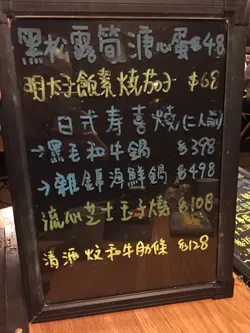 黑松露筒溏心蛋 $48
明太子飯素燒茄子 $68
日式寿喜燒(二人前)
→黑毛和牛鍋 $398
→雜錦海鮮鍋 $498
流心芝士玉子燒 $108
清酒炆和牛肋條 $128